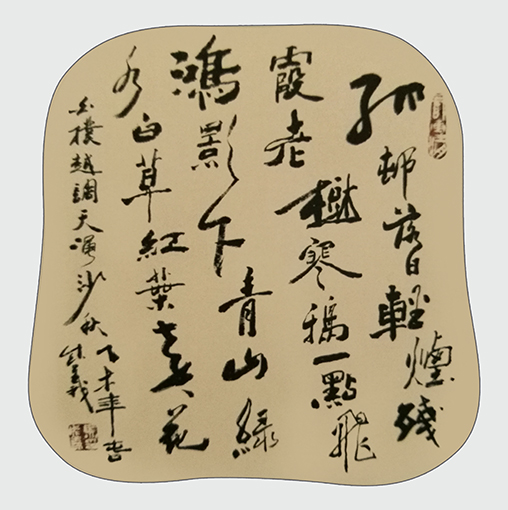 孤邨落日輕煙殘
霞老樹寒鴉一點飛
鴻影下青山綠
水白草紅葉黃花
白樸越調天淨沙秋
年